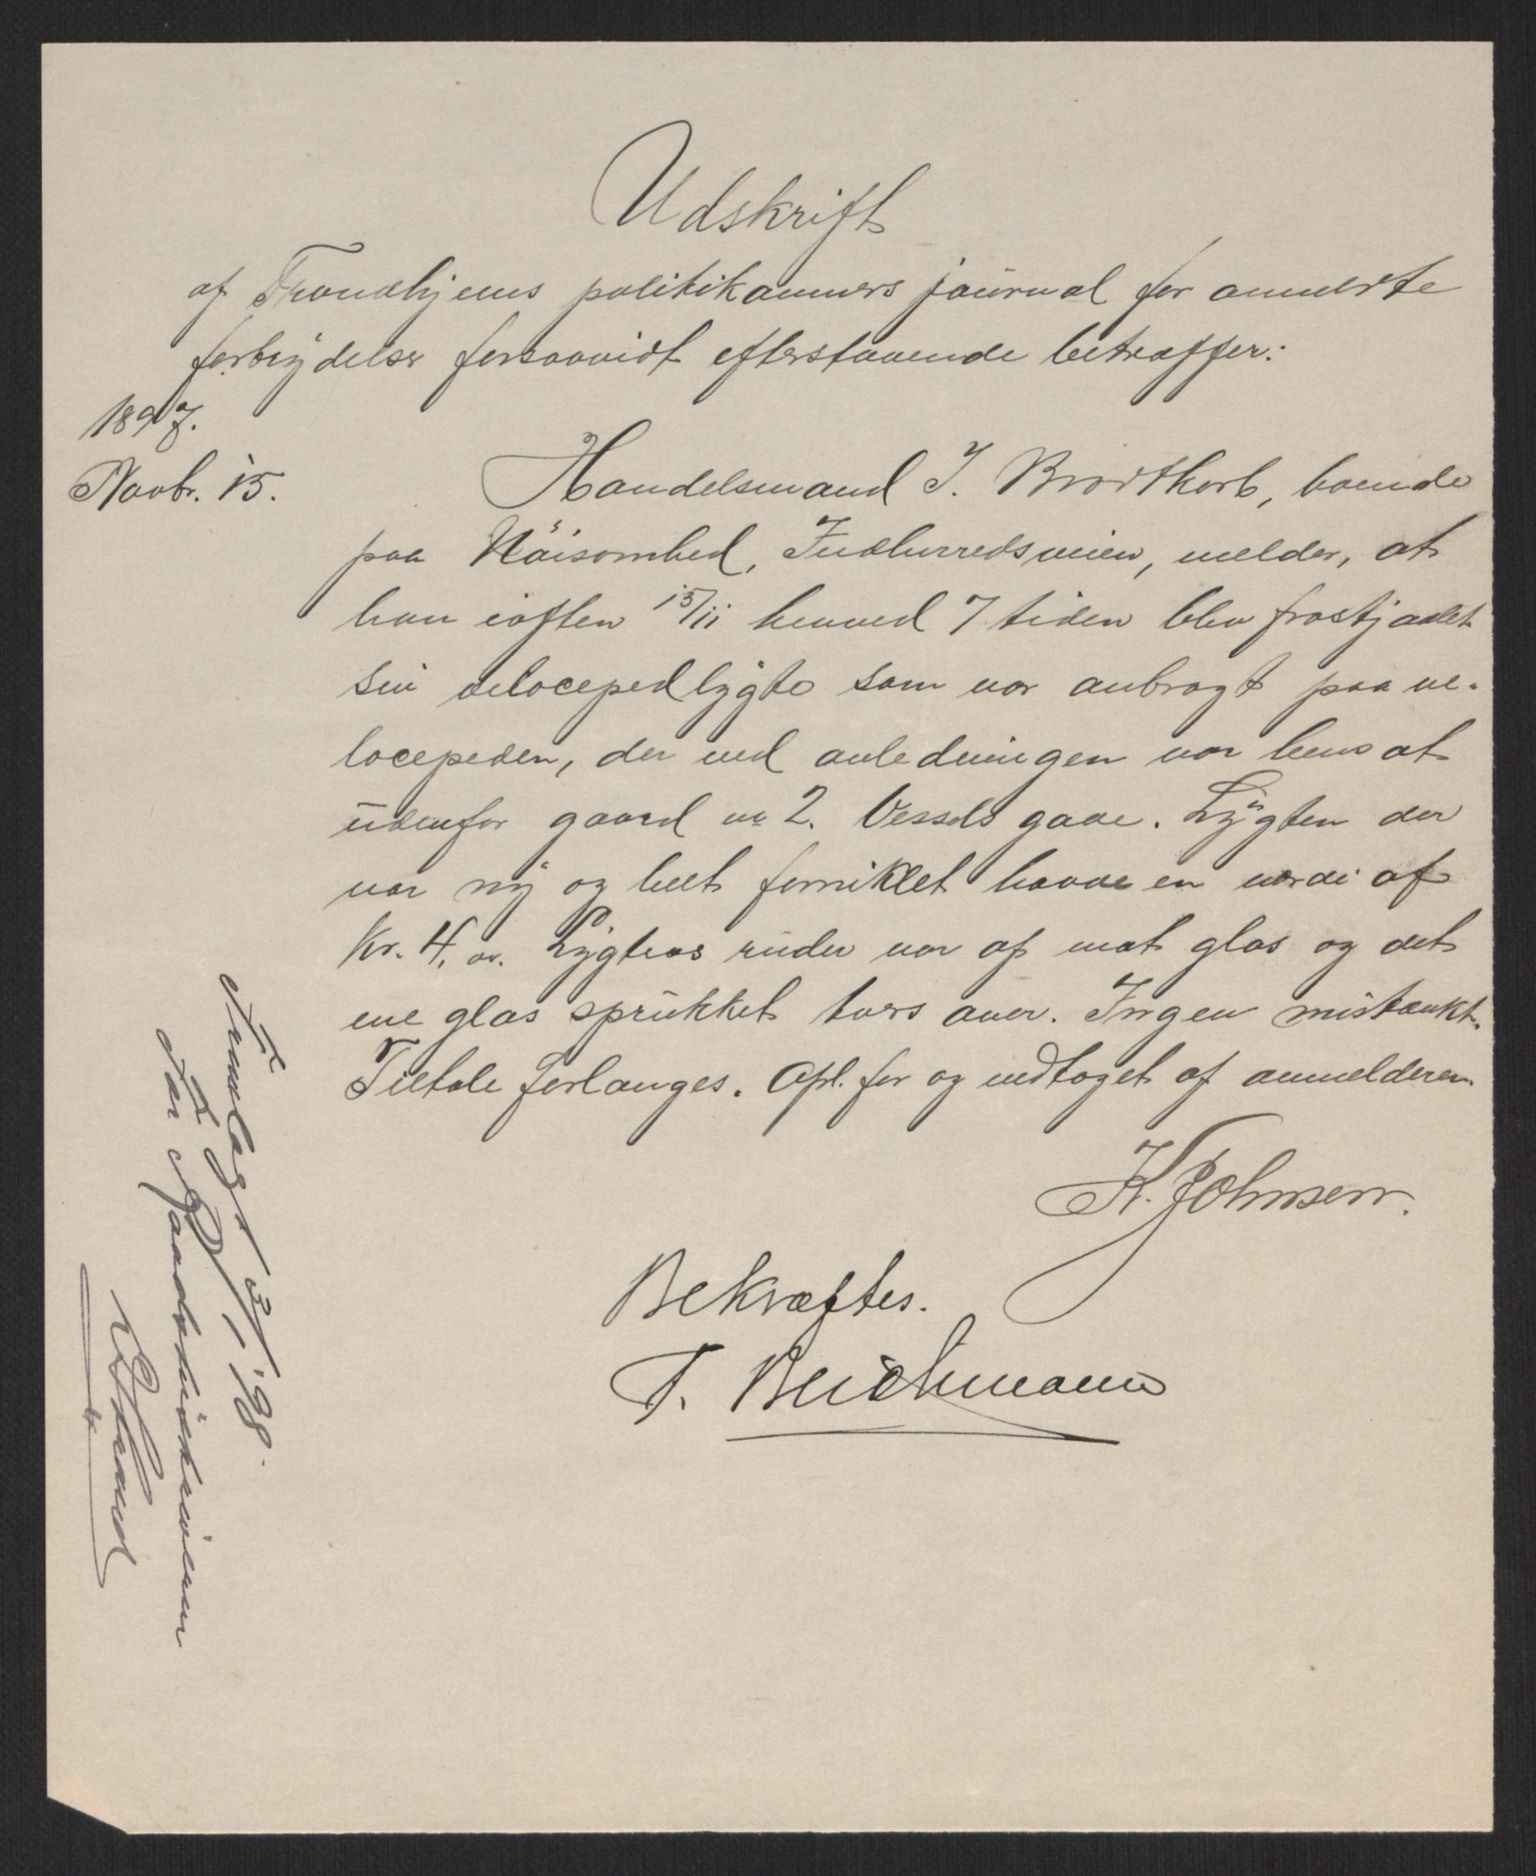 Udskrift
af Trondhjems politikammers journal for anmeldte
forbrydelser forsaavidt efterstaaende betræffer:
1897.
Novbr. 15.
Handelsmand J. Brodtkorb, boende
paa Nöisomhed, Indherredsveien, melder, at
han iaften 15/11 henved 7 tiden blev frastjaalet
sin velocepedlygte som var anbragt paa ve-
locepeden, der ved anledningen var hensat
udenfor gaard no 2. Vessels gade. Lygten der
var ny og helt forniklet havde en værdi af
Kr. 4, oo. Lygtens ruder var af mat glas og det
ene glas sprukket tvers over. Ingen mistænkt.
Tiltale forlanges. Opl. for og vedtaget af anmelderen
K. Johnsen.
Bekræftes.
T. Beichmann
Fremlagt 3/1 '98.
før Meddomsretten